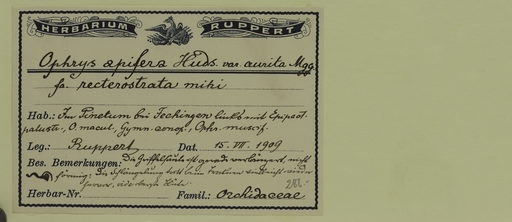 HERBARIUM RUPPERT
Ophrys apifera Huds. var. aurita Mgg.
fa. recterostrata mihi
Hab.: Im Pinetum bei Fechingen links mit Epipact.
palustr., O. macul., Gymn. conop., Ophr. muscif.
Leg.: Ruppert Dat. 15. VII. 1909
Bes. Bemerkungen: Die Griffelsäule ist gerade verlängert nicht
förmig; Die
Herbar-Nr. Famil.: Orchidaceae